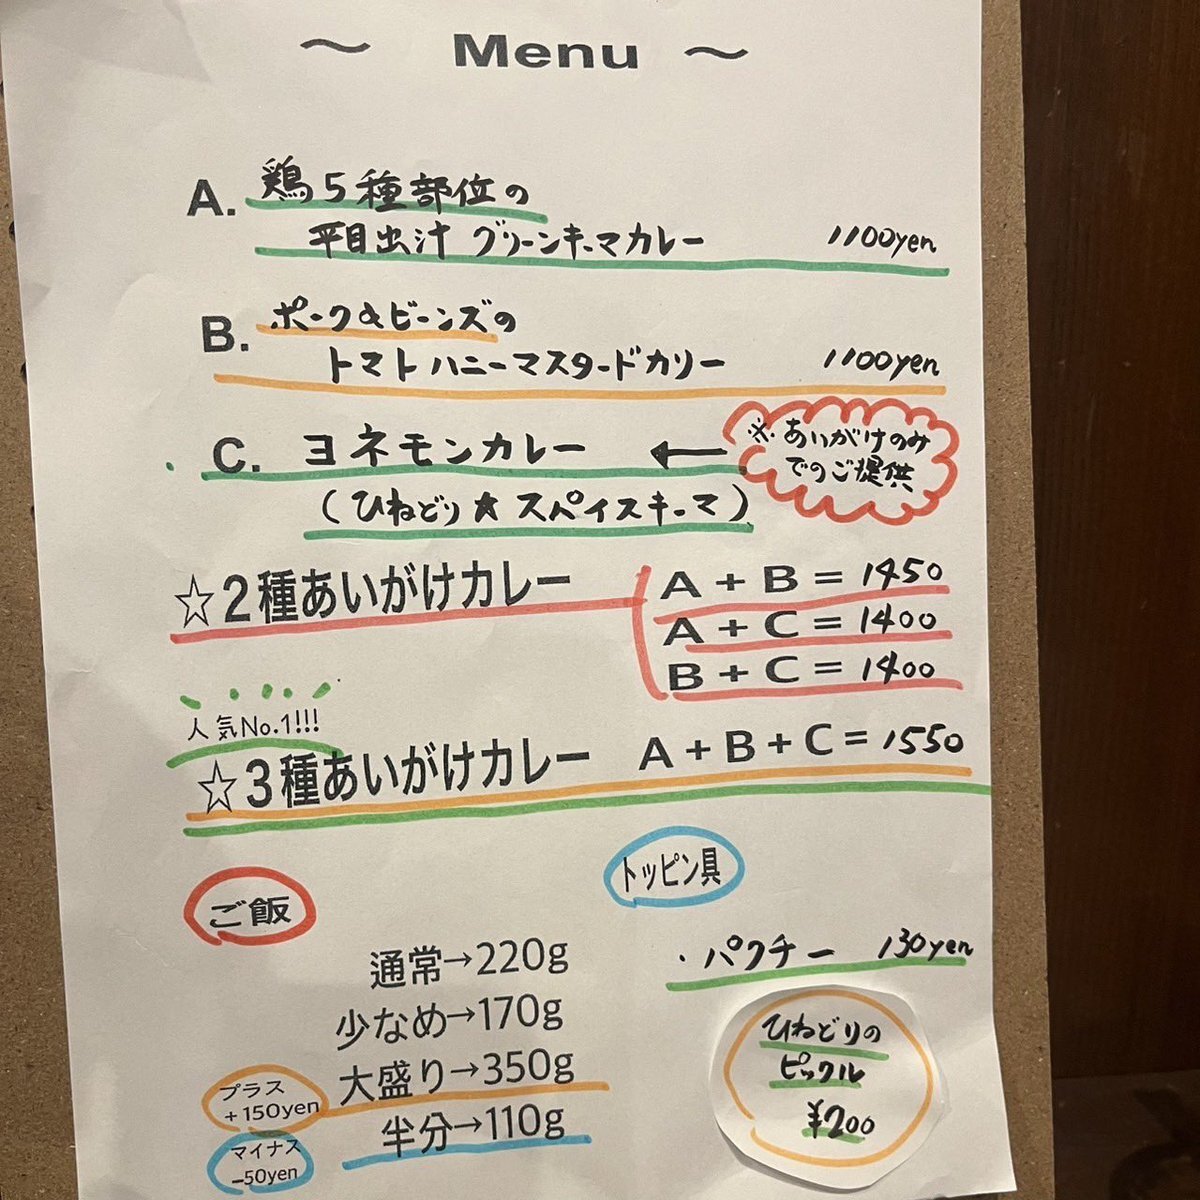 〜 Menu 〜
A. 鶏5種部位の
平目出汁 グリーンキーマカレー 1100yen
B. ポーク&ビーンズの
トマトハニーマスタードカリー 1100yen
C. ヨネモンカレー ←
※あいがけのみ
でのご提供
(ひねどり★スパイスキーマ)
☆2種あいがけカレー
A+B=1450
A+C=1400
B+C=1400
人気No.1!!!
☆3種あいがけカレー A+B+C=1550
ご飯
通常→220g
少なめ→170g
大盛り→350g
プラス
+150yen
半分→110g
マイナス
-50yen
トッピン具
・パクチー 130yen
ひねどりの
ピックル
¥200